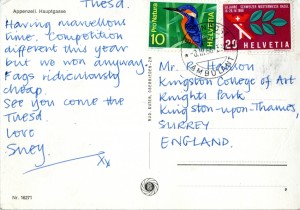 Appenzell. Hauptgasse
Tuesd.
Having marvellous
time. Competition
different this year
but we won anyway.
Fags ridiculously
cheap.
See you come the
Tuesd.
Love
Suey.
Xx
Pro Natura
10
HELVETIA
20
HELVETIA
AMBULANT
Mr
Kingston College of Art
Knights Park
Kingston-upon-Thames,
SURREY
ENGLAND.
Nr. 16271